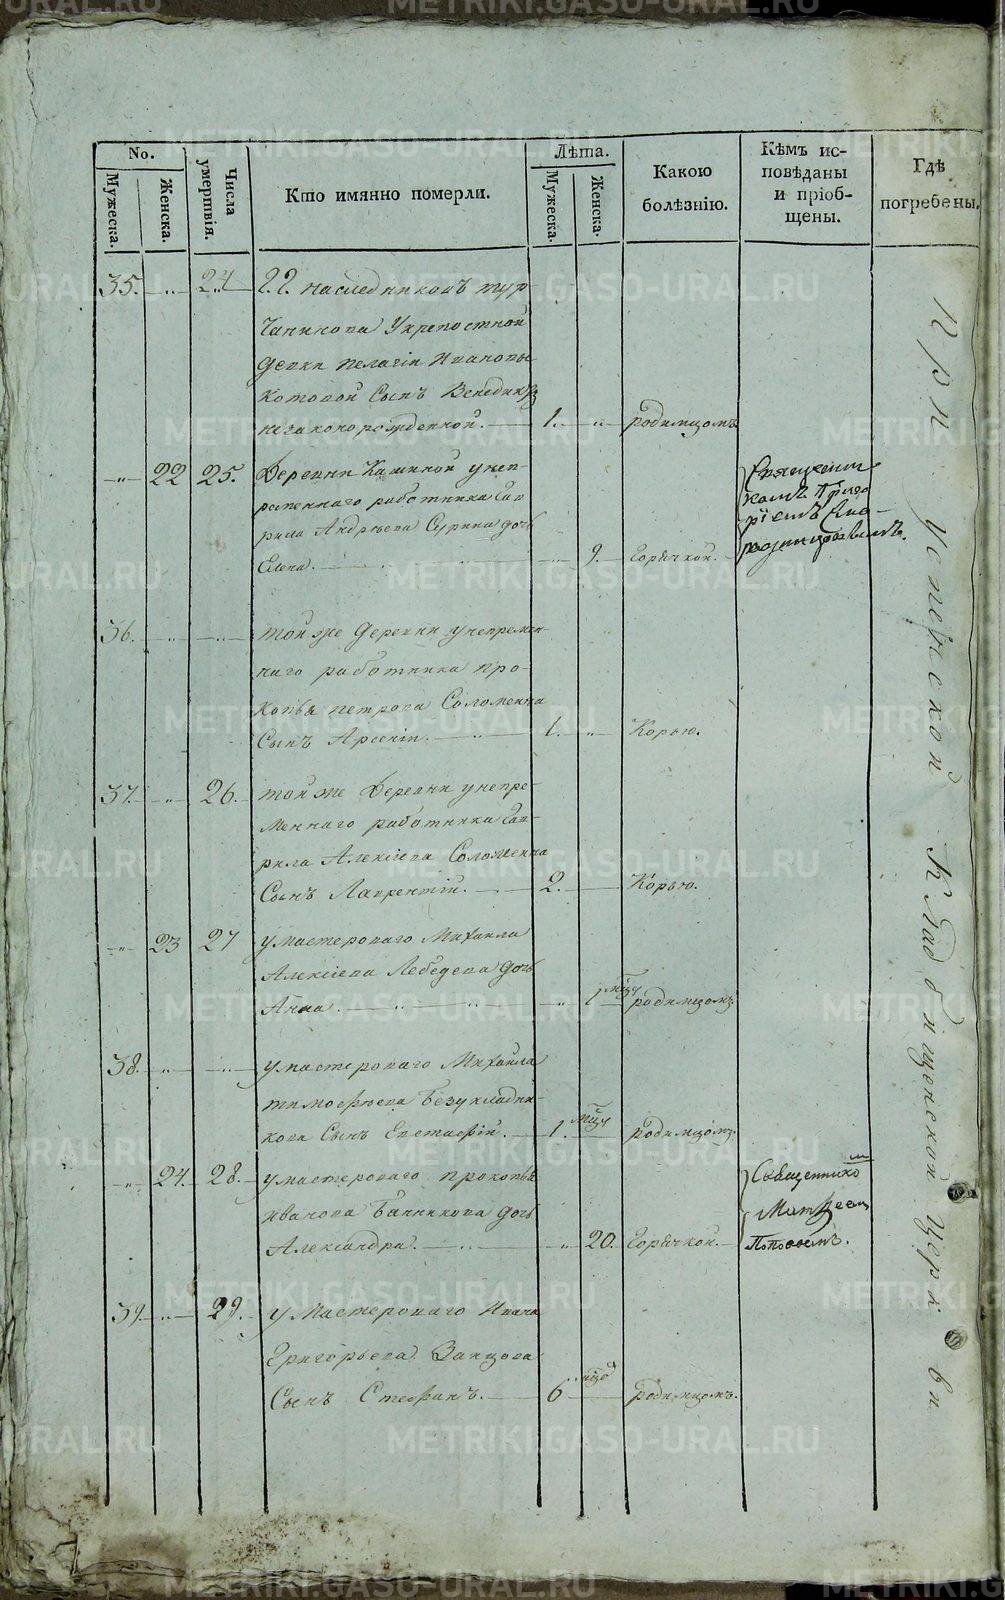 METRIKI.GASO-URAL.RU
No.
Мужеска.
Женска.
Числа умертвія.
Кто имянно померли.
Лѣта.
Мужеска.
Женска.
Какою болѣзнію.
Кѣмъ ис-
повѣданы
и пріоб-
щены.
Гдѣ
погребены.
35. — „ — 24 Г. Г. наследниковъ тур-
чанинова Укрепостной
девки пелагіи Ивановы
Котовой Сынъ Венедикт
незаконорожденной. — 1. „ родимцомъ
„ 22 25. Деревни Кашиной унеп-
ременнаго работника Гав
рила Андреева Сурина дочь
Елена. — „ — 9. Горячкой.
Священни
комъ Григо
ріемъ
36. „ — „ — той же деревни унепремен
наго работника про-
копья петрова Соломеина
Сынъ Арсеній. — „ — 1. „ Корью.
37. — „ — 26. той же Деревни унепре-
меннаго работника Гав-
рила Алексіева Соломеина
Сынъ Лаврентій. — 2. — Корью.
„ 23 27 умастероваго Михаила
Алексіева Лебедева дочь
Анна. — „ — „ 1 мцу родимцомъ
38. „ — „ — умастероваго Михаила
тимофеева Безукладни-
кова Сынъ Евстафій. — 1. мцу родимцомъ.
„ 24. 28. умастероваго прокопья
иванова Банникова дочь
Александра. — „ — „ 20. Горячкой.
Священнико
м
Матѳеем
Поповымъ.
39. — „ — 29. умастероваго Ивана
Григорьева Заицова
Сынъ Стефанъ. — 6 родимцомъ.
При успенской Кладбищенской церкви